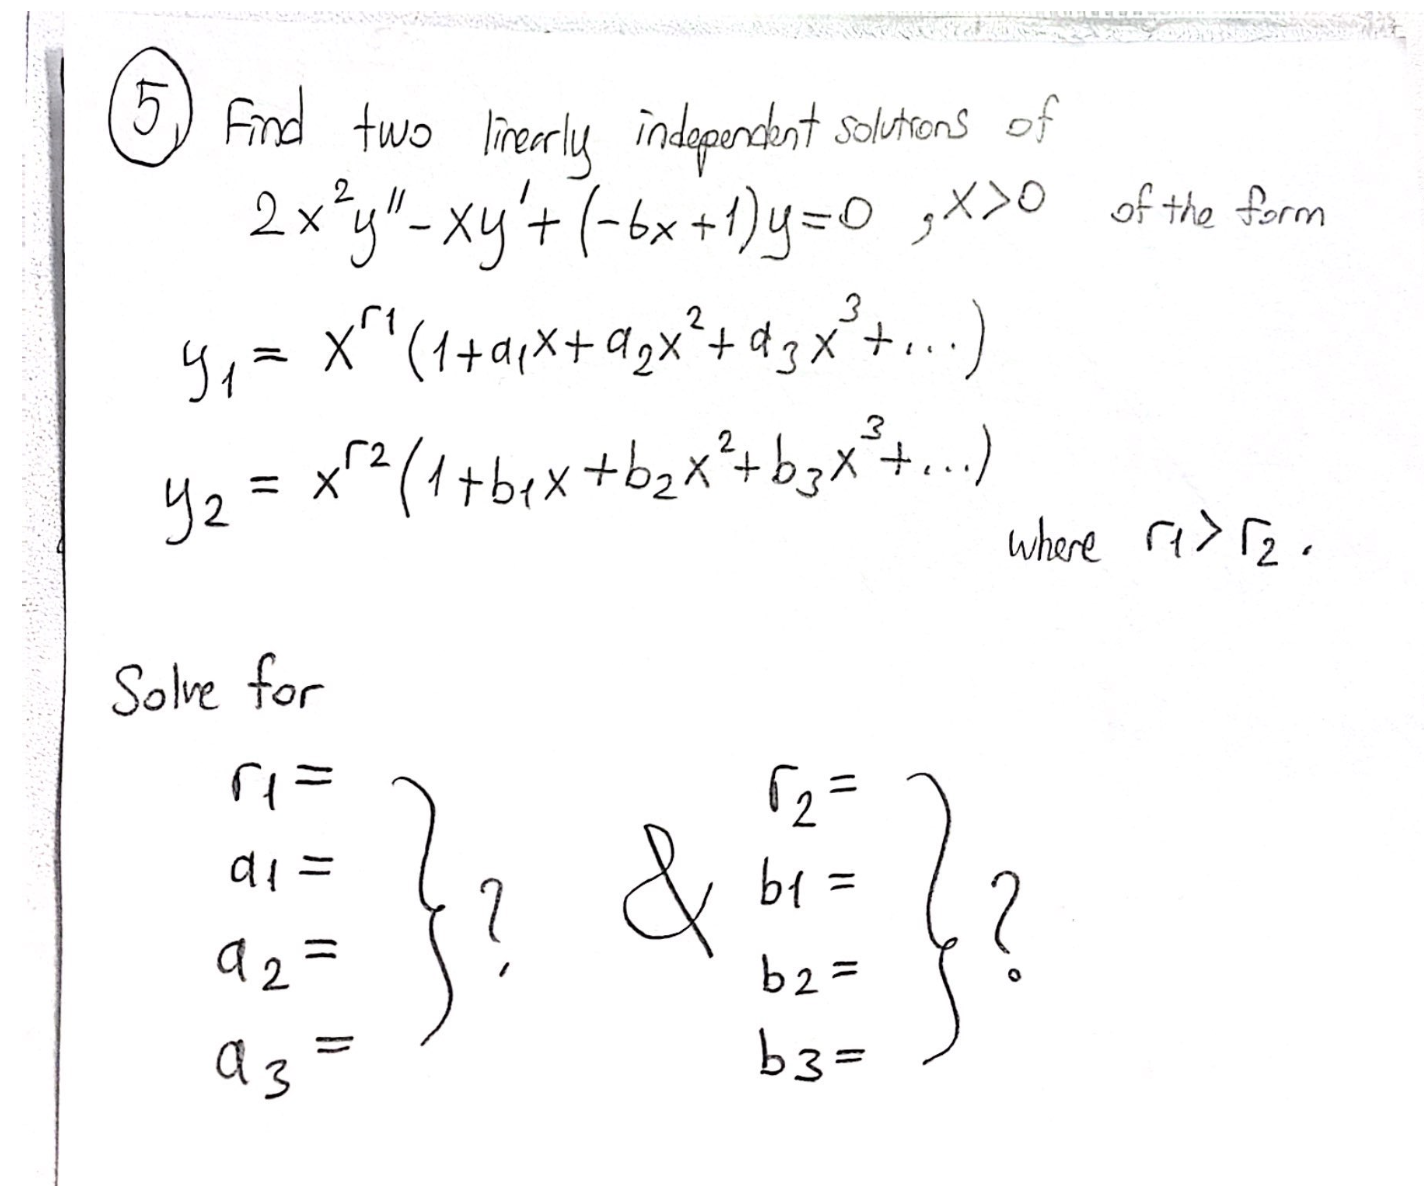 5) Find two linearly independent solutions of
2x²y'' - xy' + (-6x+1)y=0 , x>0 of the form
y₁ = x^r1 (1+a₁x+a₂x²+a₃x³+...)
y₂ = x^r2 (1+b₁x+b₂x²+b₃x³+...)
where r₁>r₂.
Solve for
r₁= } ? & r₂= } ?
a₁= b₁=
a₂= b₂=
a₃= b₃=